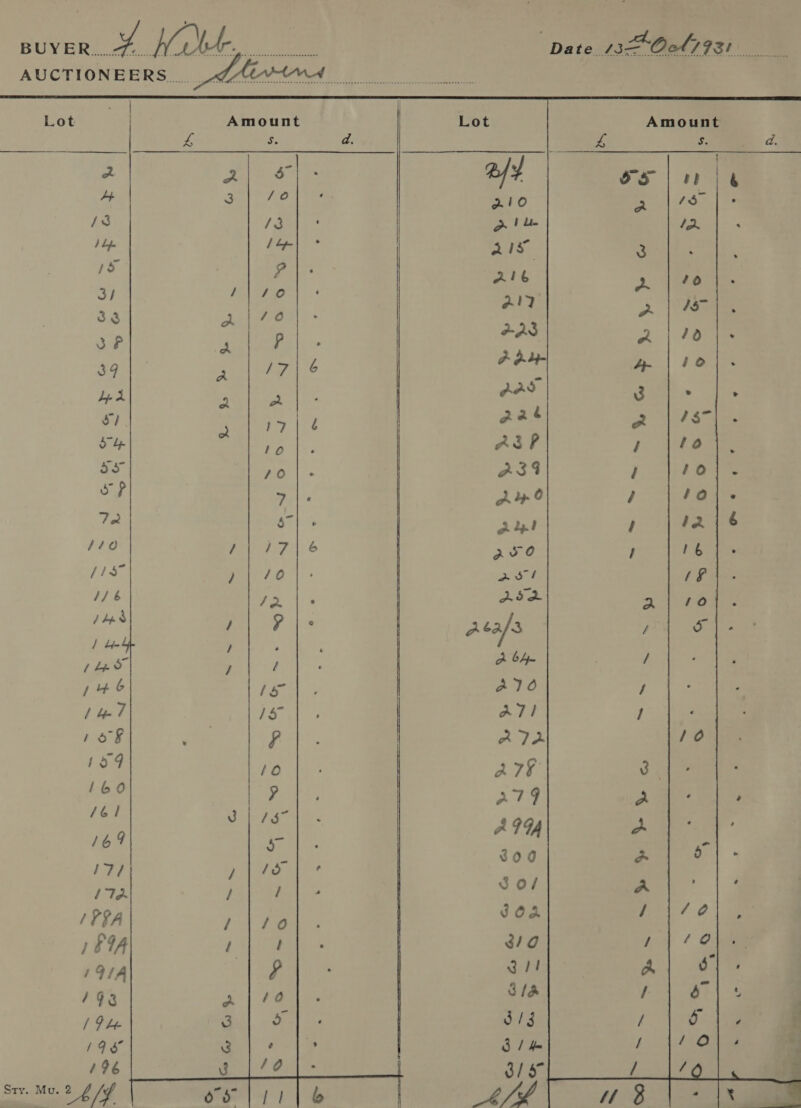 BUYER
AUCTIONEERS Stevens
Date 13th Oct 1931
Lot Amount Lot Amount
£ s. d. £ s. d.
2 2 5 - B/F 55 11 6
4 3 10 - 210 2 15 -
13 13 - 214 12 -
14 14 - 215 3 - -
15 8 - 216 2 10 -
31 1 10 - 217 2 15 -
33 2 10 - 223 2 10 -
38 2 8 - 224 4 10 -
39 2 17 6 225 3 - -
42 2 2 - 226 2 15 -
51 2 17 6 238 1 10 -
54 10 - 239 1 10 -
55 10 - 240 1 10 -
58 7 - 241 1 12 6
72 5 - 250 1 16 -
110 1 17 6 251 18 -
115 1 10 - 252 2 10 -
116 12 - 262/3 1 5 -
143 1 8 - 264 1 - -
144 1 - - 270 1 - -
145 1 1 - 271 1 - -
146 15 - 272 10 -
147 15 - 278 3 - -
158 8 - 279 2 - -
159 10 - 299A 2 - -
160 8 - 300 2 5 -
161 3 15 - 301 2 - -
169 5 - 302 1 10 -
171 1 15 - 310 1 10 -
172 1 1 - 311 2 5 -
188A 1 10 - 312 1 5 -
189A 1 1 - 313 1 5 -
191A 8 - 314 1 10 -
193 2 10 - 315 1 10 -
194 3 5 -
195 3 - -
196 3 10 -
Sry. Mu. 2 C/F 55 11 6 C/F 118 -